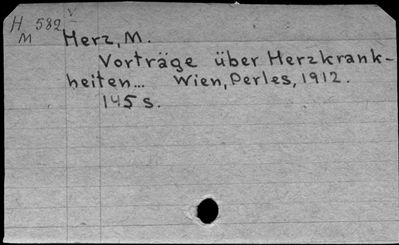 H 582 V
M
Herz, M.
Vorträge über Herzkrank-
heiten... Wien, Perles, 1912.
145 s.